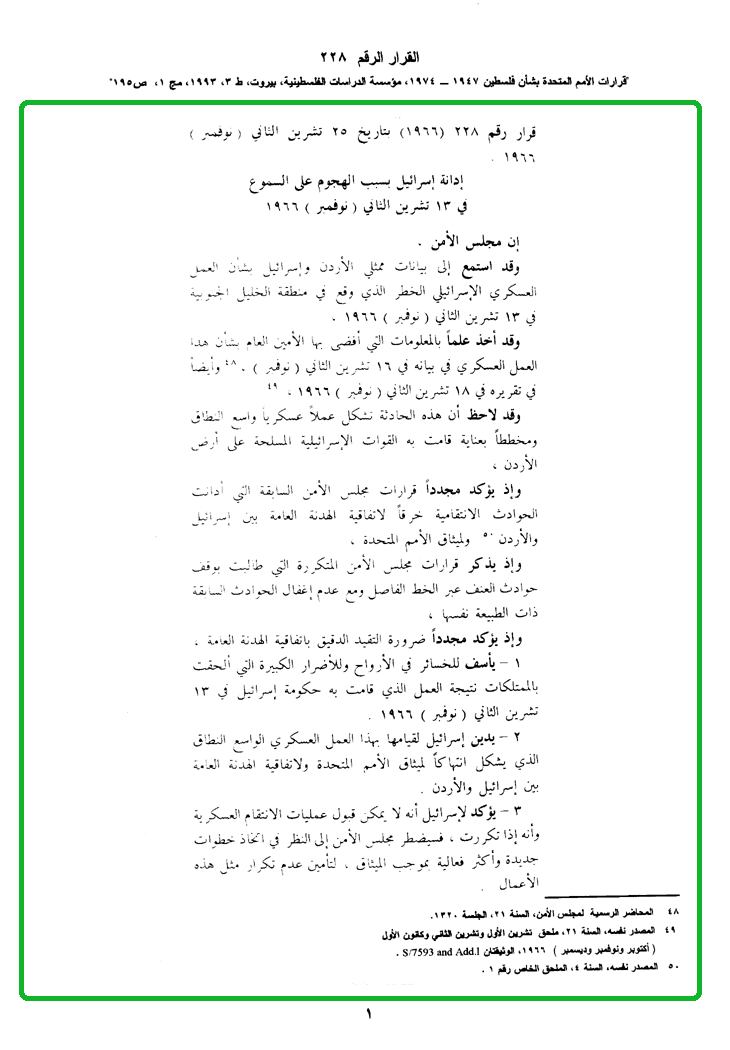 القرار الرقم ٢٢٨
"قرارات الأمم المتحدة بشأن فلسطين ١٩٤٧ – ١٩٧٤، مؤسسة الدراسات الفلسطينية، بيروت، ط ٣، ١٩٩٣، مج ١، ص١٩٥"
قرار رقم ٢٢٨ (١٩٦٦) بتاريخ ٢٥ تشرين الثاني ( نوفمبر )
١٩٦٦ .
إدانة إسرائيل بسبب الهجوم على السموع
في ١٣ تشرين الثاني ( نوفمبر ) ١٩٦٦
إن مجلس الأمن .
وقد استمع إلى بيانات ممثلي الأردن وإسرائيل بشأن العمل
العسكري الإسرائيلي الخطر الذي وقع في منطقة الخليل الجنوبية
في ١٣ تشرين الثاني ( نوفمبر ) ١٩٦٦ .
وقد أخذ علماً بالمعلومات التي أفضى بها الأمين العام بشأن هذا
العمل العسكري في بيانه في ١٦ تشرين الثاني ( نوفمبر ) .٤٨ وأيضاً
في تقريره في ١٨ تشرين الثاني ( نوفمبر ) ١٩٦٦ ،٤٩
وقد لاحظ أن هذه الحادثة تشكل عملاً عسكرياً واسع النطاق
ومخططاً بعناية قامت به القوات الإسرائيلية المسلحة على أرض
الأردن ،
وإذ يؤكد مجدداً قرارات مجلس الأمن السابقة التي أدانت
الحوادث الانتقامية خرقاً لاتفاقية الهدنة العامة بين إسرائيل
والأردن ٥٠ ولميثاق الأمم المتحدة ،
وإذ يذكر قرارات مجلس الأمن المتكررة التي طالبت بوقف
حوادث العنف عبر الخط الفاصل ومع عدم إغفال الحوادث السابقة
ذات الطبيعة نفسها ،
وإذ يؤكد مجدداً ضرورة التقيد الدقيق باتفاقية الهدنة العامة ،
١ – يأسف للخسائر في الأرواح وللأضرار الكبيرة التي ألحقت
بالممتلكات نتيجة العمل الذي قامت به حكومة إسرائيل في ١٣
تشرين الثاني ( نوفمبر ) ١٩٦٦ .
٢ – يدين إسرائيل لقيامها بهذا العمل العسكري الواسع النطاق
الذي يشكل انتهاكاً لميثاق الأمم المتحدة ولاتفاقية الهدنة العامة
بين إسرائيل والأردن .
٣ – يؤكد لإسرائيل أنه لا يمكن قبول عمليات الانتقام العسكرية
وأنه إذا تكررت ، فسيضطر مجلس الأمن إلى النظر في اتخاذ خطوات
جديدة وأكثر فعالية بموجب الميثاق ، لتأمين عدم تكرار مثل هذه
الأعمال .
٤٨ المحاضر الرسمية لمجلس الأمن، السنة ٢١، الجلسة ١٣٢٠.
٤٩ المصدر نفسه، السنة ٢١، ملحق تشرين الأول وتشرين الثاني وكانون الأول
( أكتوبر ونوفمبر وديسمبر ) ١٩٦٦، الوثيقتان S/7593 and Add.l .
٥٠ المصدر نفسه، السنة ٤، الملحق الخاص رقم ١ .
١